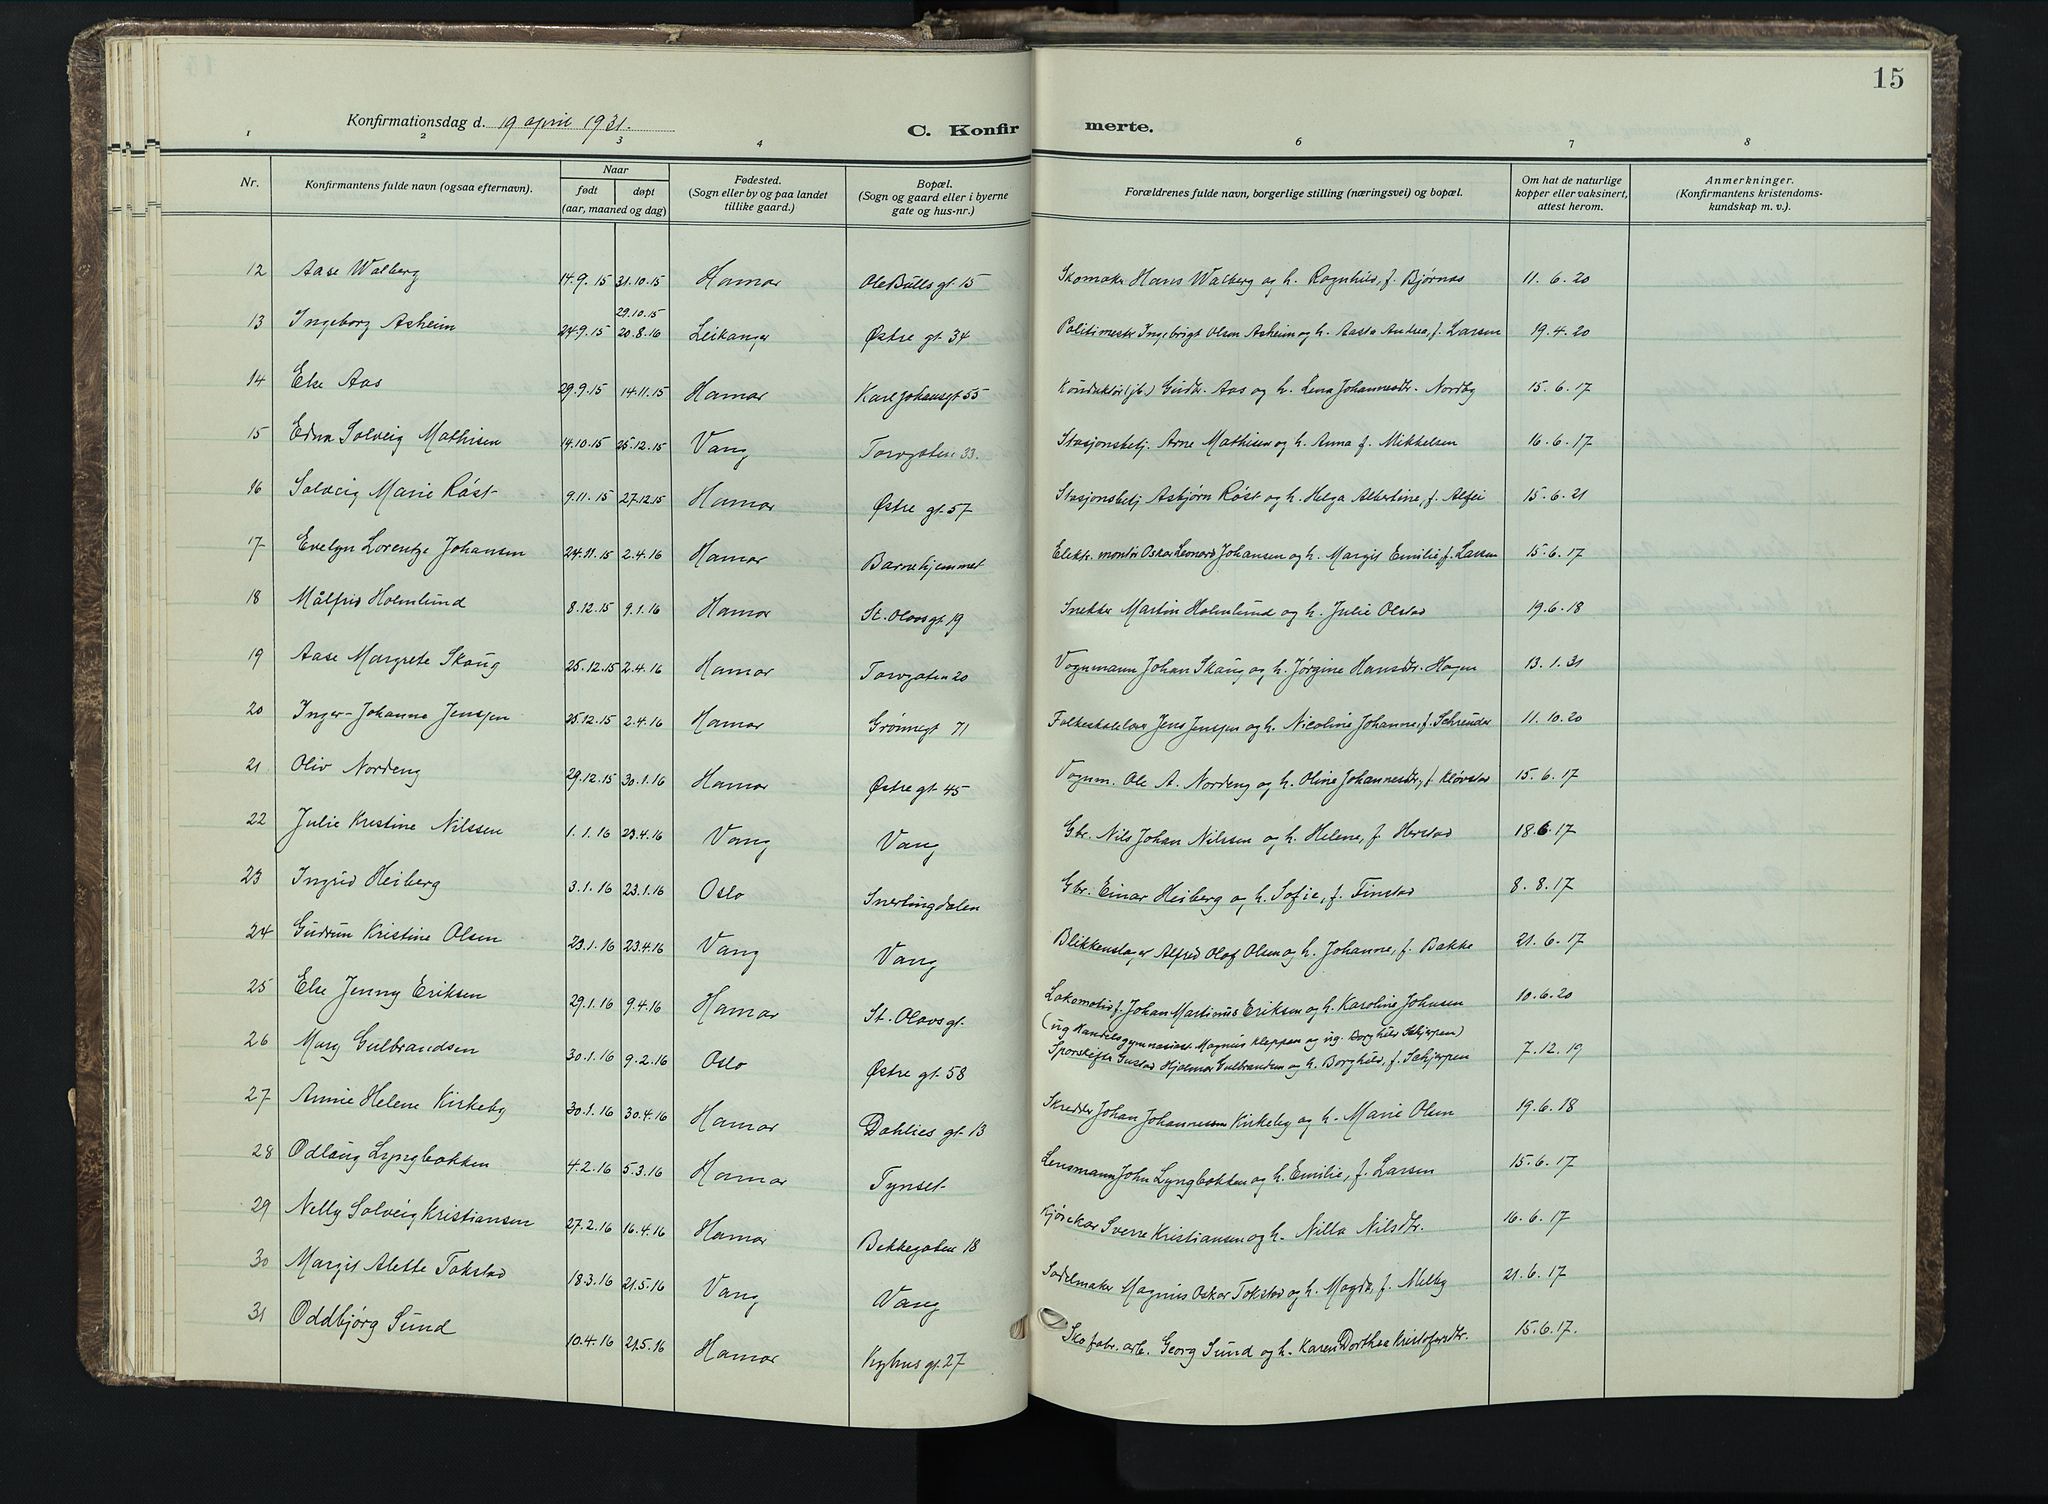 15
Konfirmationsdag d. 19 april 1931.
C. Konfir merte.
1 2 3 4 6 7 8
Nr. Konfirmantens fulde navn (ogsaa efternavn). Naar født døpt (aar, maaned og dag) Fødested. (Sogn eller by og paa landet tillike gaard.) Bopæl. (Sogn og gaard eller i byerne gate og hus-nr.) Forældrenes fulde navn, borgerlige stilling (næringsvei) og bopæl. Om hat de naturlige kopper eller vaksinert, attest herom. Anmerkninger. (Konfirmantens kristendoms-kundskap m. v.).
12 Aase Walberg 14.9.15 31.10.15 Hamar Ole Bulls gt 15 Skomaker Hans Walberg og h. Ragnhild, f. Bjørnås 11.6.20
29.10.15
13 Ingeborg Asheim 24.9.15 20.8.16 Leikanger Østre gt. 34 Politimester Ingebrigt Olsen Asheim og h. Aasta Andrea, f. Larsen 19.4.20
14 Else Aas 29.9.15 14.11.15 Hamar Karl Johansgt 55 Konduktør (jb.) Gudbr. Aas og h. Lena Johannesdr. Nordby 15.6.17
15 Edna Solveig Mathisen 14.10.15 25.12.15 Vang Torvgaten 33. Stasjonsbetj. Arne Mathisen og h. Anna f. Mikkelsen 16.6.17
16 Solveig Marie Røst 9.11.15 27.12.15 Hamar Østre gt. 57 Stasjonsbetj Asbjørn Røst og h. Helga Albertine, f. Alfei 15.6.21
17 Evelyn Lorentze Johansen 24.11.15 2.4.16 Hamar Barnehjemmet Elektr. montør Oskar Leonard Johansen og h. Margit Emilie, f. Larsen 15.6.17
18 Målfrid Holmlund 8.12.15 9.1.16 Hamar St. Olavsgt 19 Snekker Martin Holmlund og h. Julie Olstad 19.6.18
19 Aase Margrete Skaug 25.12.15 2.4.16 Hamar Torvgaten 20 Vognmann Johan Skaug og h. Jørgine Hansdr. Hagen 13.1.31
20 Inger-Johanne Jenssen 25.12.15 2.4.16 Hamar Grønnegt 71 Folkeskolelærer Jens Jenssen og h. Nicoline Johanne, f. Schreuder 11.10.20
21 Oliv Nordeng 29.12.15 30.1.16 Hamar Østre gt 45 Vognm. Ole A. Nordeng og h. Oline Johannesdr, f. Kløvstad 15.6.17
22 Julie Kristine Nilssen 1.1.16 23.4.16 Vang Vang Gbr. Nils Johan Nilssen og h. Helene, f. Herstad 18.6.17
23 Ingrid Heiberg 3.1.16 23.1.16 Oslo Snertingdalen Gbr. Einar Heiberg og h. Sofie, f. Finstad 8.8.17
24 Gudrun Kristine Olsen 23.1.16 23.4.16 Vang Vang Blikkenslager Alfred Olaf Olsen og h. Johanne, f. Bakke 21.6.17
25 Else Jenny Eriksen 29.1.16 9.4.16 Hamar St. Olavsgt. Lokomotivf. Johan Martinus Eriksen og h. Karoline Johnsen 10.6.20
(ug Handelsgymnasiast Magnus Kleppen og ug. Borghild Schjerpen)
26 Mary Gulbrandsen 30.1.16 9.2.16 Oslo Østre gt. 58 Sporskifter Gustav Hjalmar Gulbrandsen og h. Borghild, f. Schjerpen 7.12.19
27 Annie Helene Kirkeby 30.1.16 30.4.16 Hamar Dahlies gt. 13 Skredder Johan Johannessen Kirkeby og h. Marie Olsen 19.6.18
28 Odlaug Lyngbakken 4.2.16 5.3.16 Hamar Tynset Lensmann John Lyngbakken og h. Emilie, f. Larsen 15.6.17
29 Nelly Solveig Kristiansen 27.2.16 16.4.16 Hamar Bekkegaten 18 Kjørekar Sverre Kristiansen og h. Nilla Nilsdr. 16.6.17
30 Margit Alette Tokstad 18.3.16 21.5.16 Vang Vang Sadelmaker Magnus Oskar Tokstad og h. Magda, f. Melby 21.6.17
31 Oddbjørg Sund 10.4.16 21.5.16 Hamar Kyhus gt. 27 Skofabr. arb. Georg Sund og h. Karen Dorthea Kristofersdtr. 15.6.17.